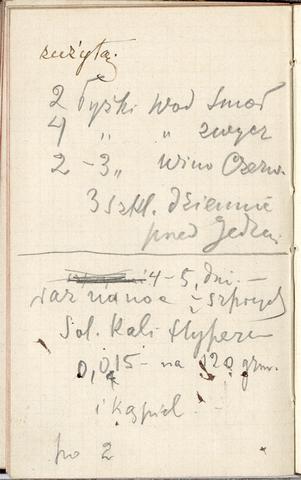 zużytą.
2 łyżki wod smoł
4 „ „ zwycz
2-3 „ wina Czerw.
3 szkl. dziennie
przed Jedzen
4-5, dni. —
raz na noc
Sol. Kali Hyper
0,015 - na 120 grm.
i kąpiel. -
po 2